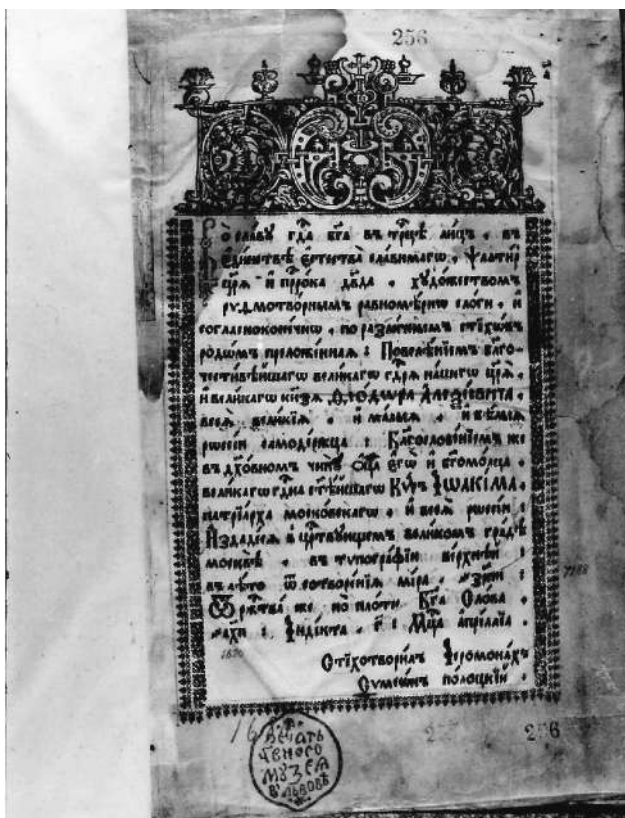 256
Во славу гдⷭ҇а бг҃а въ трⷪ҇цѣ лицъ, въ
єди́нствѣ є҆стества̀ сла́вимагѡ, Ѱалти́рь
цр҃ѧ̀ и҆ прⷪ҇ро́ка дв҃да, худо́жествомъ
равномѣ́рнѡ сло́ги, и
согласноконе́чнѡ, по разли́чнымъ стїхѡ́въ
родѡ́мъ преложе́ннаѧ: Повелѣ́нїемъ благо-
чести́вѣйшагѡ вели́кагѡ гдⷭ҇рѧ на́шегѡ цр҃ѧ̀,
и҆ вели́кагѡ кнѧ́зѧ Ѳео́дѡра Алеѯі́евича,
всеѧ̀ вели́кїѧ, и ма́лыѧ, и бѣ́лыѧ
рѡссі́и самоде́ржца: Благослове́нїемъ же
въ дх҃о́вномъ чи́нѣ ѻ҆ц҃а̀ є҆гѡ̀ и҆ бг҃омо́лца,
вели́кагѡ гдⷭ҇и́на ст҃ѣ́йшагѡ Кѵ́ръ І҆ѡакі́ма,
патрїа́рха моско́вскагѡ, и всеѧ̀ рѡссі́и:
И҆здаде́сѧ въ ца́рствующемъ вели́комъ гра́дѣ
москвѣ̀, въ тѵпогра́фїи ве́рхней:
въ лѣ́то ѿ сотворе́нїѧ мі́ра, ҂зрпи:
Ѿ рⷤ҇тва̀ же по пло́ти Бг҃а Сло́ва,
҂ах҃п: І҆ндїкта, г҃: Мцⷭ҇а а҆прі́ллїа
7188
1680
Стїхотвори́лъ І҆еромона́хъ
Сѵмеѡ́нъ по́лоцкїй.
256
Печать
музеѧ
в Львовѣ